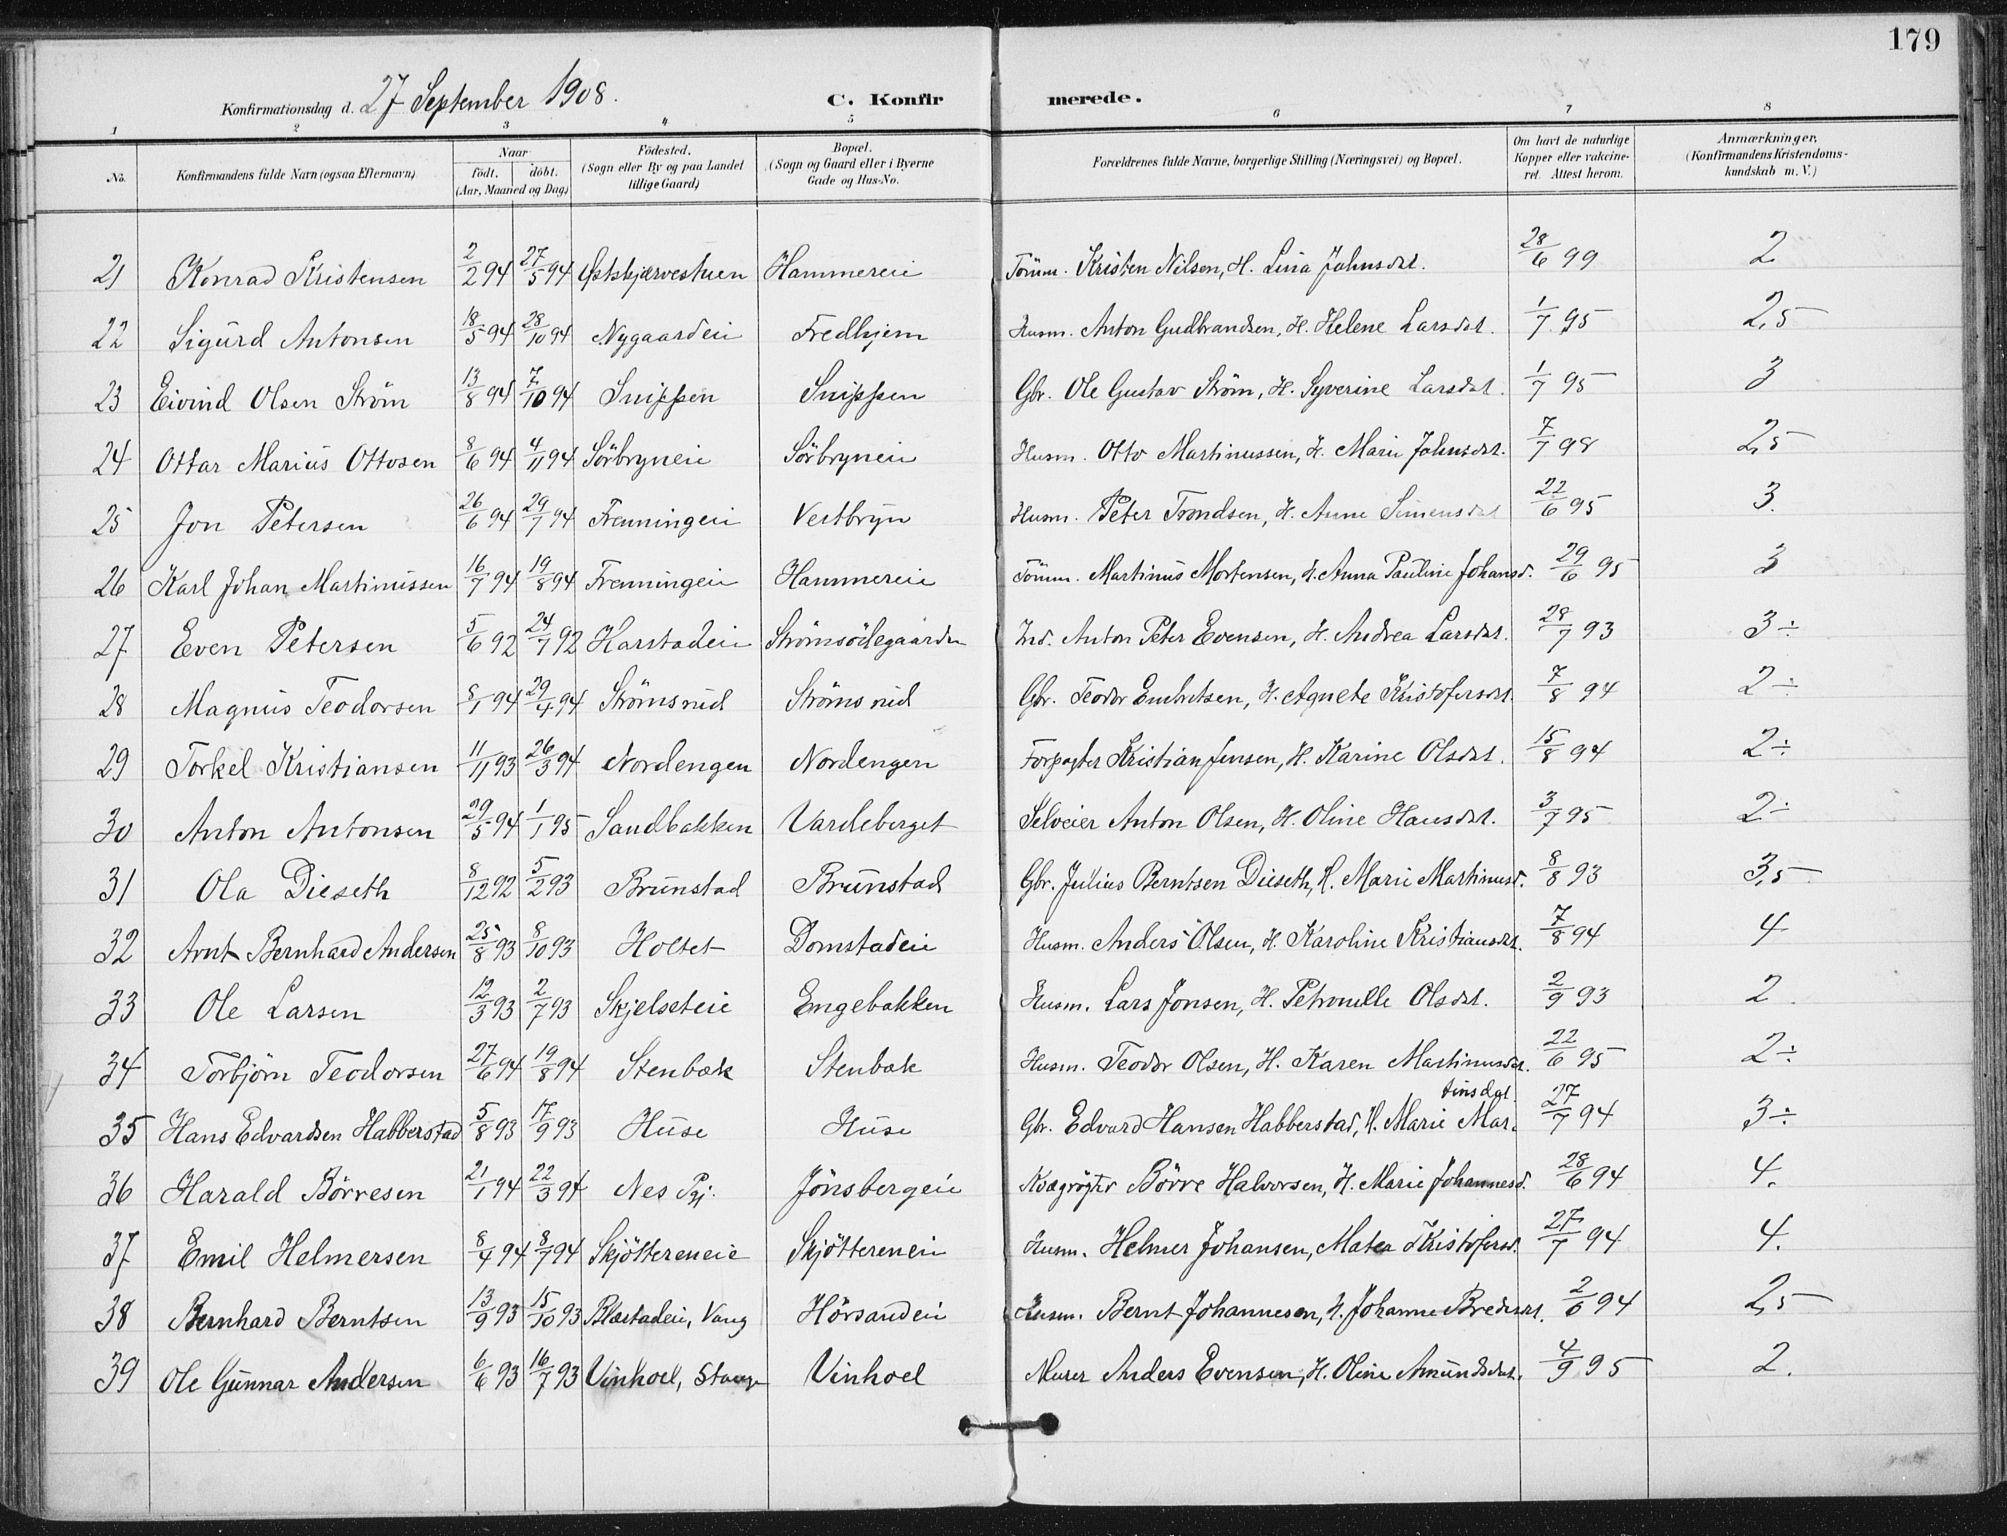 179
Konfirmationsdag d. 27 September 1908. C. Konfirmerede.
1 2 3 4 5 6 7 8
No. Konfirmandens fulde Navn (ogsaa Efternavn) Naar født. døbt. (Aar, Maaned og Dag) Fødested. (Sogn eller By og paa Landet tillige Gaard) Bopæl. (Sogn og Gaard eller i Byerne Gade og Hus-No. Forældrenes fulde Navne, borgerlige Stilling (Næringsvei) og Bopæl. Om havt de naturlige Kopper eller vakcineret. Attest herom. Anmærkninger. (Konfirmandens Kristendomskundskab m. V.)
21 Konrad Kristensen 2/2 94 27/5 94 Østskjærvestuen Hammereie Tømm. Kristen Nilsen, H. Lina Johnsdat. 28/6 99 2
22 Sigurd Antonsen 18/5 94 28/10 94 Nygaardeie Fredhjem Husm. Anton Gudbrandsen, H. Helene Larsdat. 1/7 95 2,5
23 Eivind Olsen Strøm 13/8 94 7/10 94 Snippen Snippen Gbr. Ole Gustav Strøm, H. Syverine Larsdat. 1/7 95 3
24 Ottar Marius Ottosen 8/6 94 4/11 94 Sörbryneie Sörbryneie Husm. Otto Martinussen, H. Marie Johnsdat. 7/7 98 2,5
25 Jon Petersen 26/6 94 29/7 94 Frenningeie Vestbryn Husm. Peter Trondsen, H. Anne Simensdat 22/6 95 3.
26 Karl Johan Martinussen 16/7 94 19/8 94 Frenningeie Hammereie Tömm. Martinus Mortensen, H. Anna Pauline Johansd. 29/6 95 3
27 Even Petersen 5/6 92 24/7 92 Harstadeie Strömsödegaarden Ind. Anton Peter Evensen, H. Andrea Larsdat. 28/7 93 3÷
28 Magnus Teodorsen 8/1 94 29/4 94 Strömsrud Strömsrud Gbr. Teodor Embretsen, H. Agnete Kristofersdat. 7/8 94 2÷
29 Torkel Kristiansen 11/11 93 26/3 94 Nordengen Nordengen Forpagter Kristian Jensen, H. Karine Olsdat. 15/8 94 2÷
30 Anton Antonsen 29/5 94 1/1 95 Sandbakken Vardeberget Selveier Anton Olsen, H. Oline Hansdat. 3/7 95 2÷
31 Ola Dieseth 8/12 92 5/2 93 Brunstad Brunstad Gbr. Julius Berntsen Dieseth, H. Marie Martinusd. 8/8 93 3,5
32 Arnt Bernhard Andersen 25/8 93 8/10 93 Holtet Domstadeie Husm. Anders Olsen, H. Karoline Kristiansdat. 7/8 94 4
33 Ole Larsen 12/3 93 2/7 93 Skjelseteie Engebakken Husm. Lars Jonsen, H. Petronille Olsdat. 2/9 93 2.
34 Torbjörn Teodorsen 27/6 94 19/8 94 Stenbæk Stenbæk Husm. Teodor Olsen, H. Karen Martinusdat. 22/6 95 2÷
35 Hans Edvardsen Habberstad 5/8 93 17/9 93 Huse Huse Gbr. Edvard Hansen Habberstad, H. Marie Mar. tinsdat. 27/7 94 3÷
36 Harald Börresen 21/1 94 22/3 94 Nes Pgj. Jönsbergeie Kvægrögter Börre Halvorsen, H. Marie Johannesd. 28/6 94 4.
37 Emil Helmersen 8/4 94 8/7 94 Skjöttereneie Skjöttereneie Husm. Helmer Johansen, Matea Kristofersd. 27/7 94 4.
38 Bernhard Berntsen 13/9 93 15/10 93 Blæstadeie, Vang Hörsandeie Husm. Bernt Johannesen, H. Johanne Bredesdat. 2/6 94 2,5
39 Ole Gunnar Andersen 6/6 93 16/7 93 Vinhoel, Stange Vinhoel Murer Anders Evensen, H. Oline Amundsdat. 4/9 95 2.